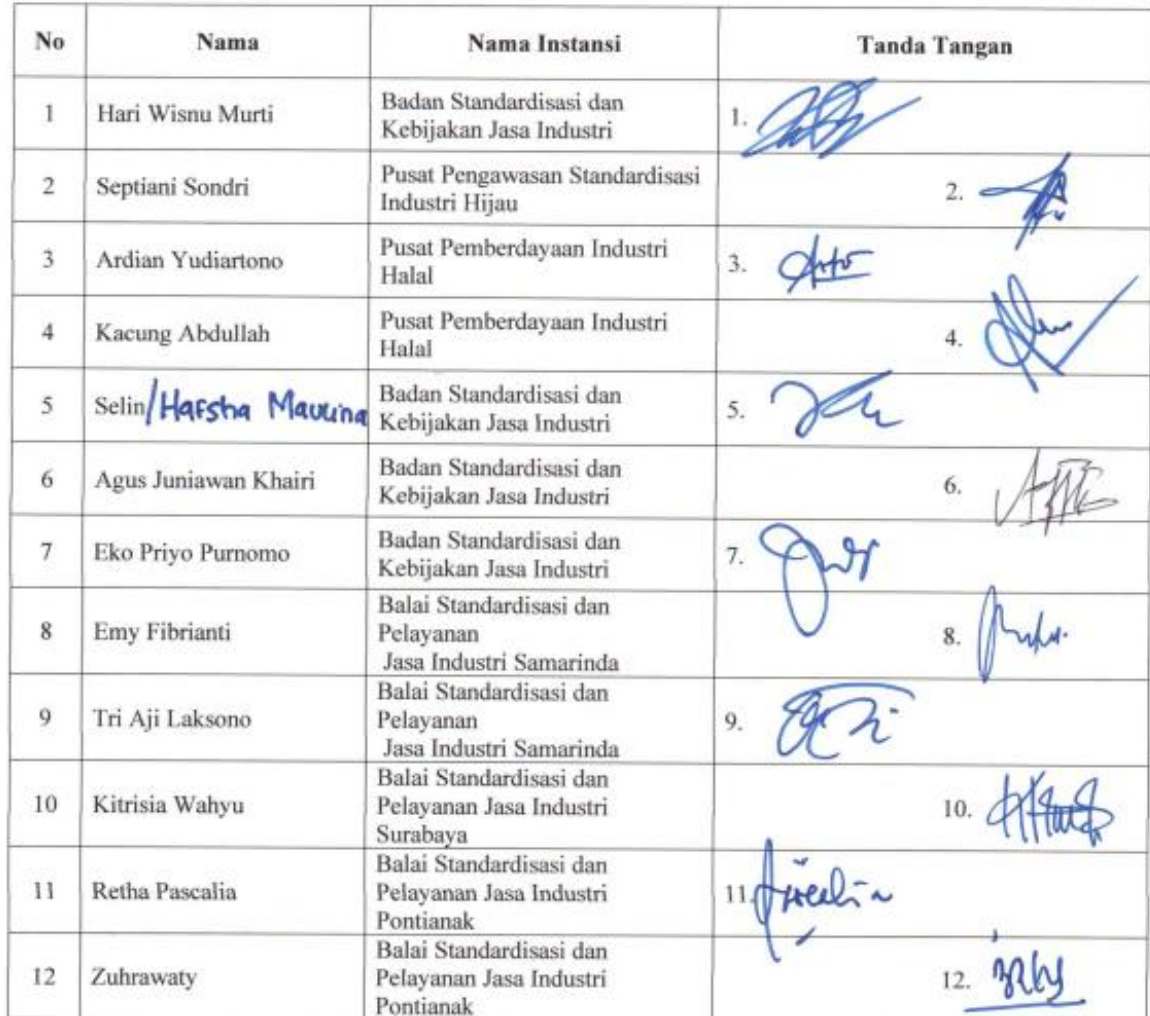 No Nama Nama Instansi Tanda Tangan
1 Hari Wisnu Murti Badan Standardisasi dan
Kebijakan Jasa Industri 1.
2 Septiani Sondri Pusat Pengawasan Standardisasi
Industri Hijau 2.
3 Ardian Yudiartono Pusat Pemberdayaan Industri
Halal 3.
4 Kacung Abdullah Pusat Pemberdayaan Industri
Halal 4.
5 Selin/Harsha Maulina Badan Standardisasi dan
Kebijakan Jasa Industri 5.
6 Agus Juniawan Khairi Badan Standardisasi dan
Kebijakan Jasa Industri 6.
7 Eko Priyo Purnomo Badan Standardisasi dan
Kebijakan Jasa Industri 7.
8 Emy Fibrianti Balai Standardisasi dan
Pelayanan
Jasa Industri Samarinda 8.
9 Tri Aji Laksono Balai Standardisasi dan
Pelayanan
Jasa Industri Samarinda 9.
10 Kitrisia Wahyu Balai Standardisasi dan
Pelayanan Jasa Industri
Surabaya 10.
11 Retha Pascalia Balai Standardisasi dan
Pelayanan Jasa Industri
Pontianak 11.
12 Zuhrawaty Balai Standardisasi dan
Pelayanan Jasa Industri
Pontianak 12.